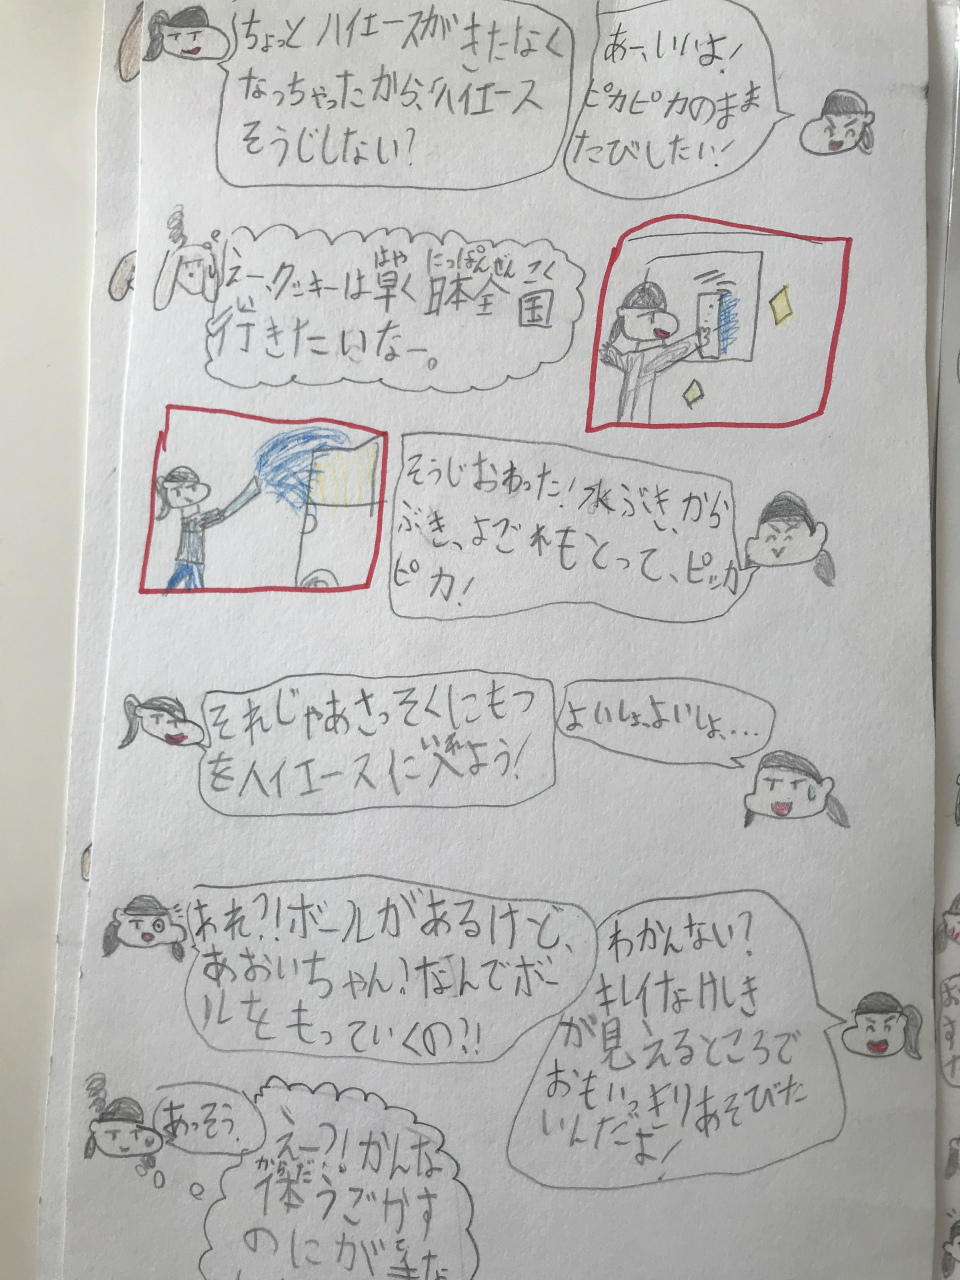 ちょっとハイエースがきたなく
なっちゃったから、ハイエース
そうじしない?
あー、いいよ!
ピカピカのまま
たびしたい!
えー、クッキーは早く日本全国
はや にっぽんぜんこく
行きたいなー。
そうじおわった!水ぶき、から
ぶき、よごれもとって、ピッカ
ピカ!
それじゃあさっそくにもつ
をハイエースに入れよう!
いれ
よいしょ、よいしょ、...
あれ?!ボールがあるけど、
あおいちゃん!なんでボー
ルをもっていくの?!
わかんない?
キレイなけしき
が見えるところで
おもいっきりあそびた
いんだよ!
あっそう、
えー?!かんな
からだ
体うごかす
のにが